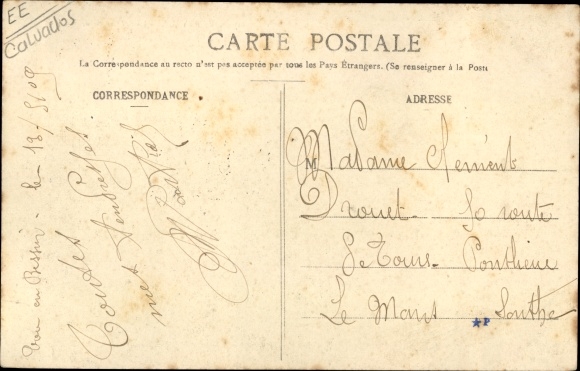 EE
Calvados
CARTE POSTALE
La Correspondance au recto n'est pas acceptée par tous les Pays Étrangers. (Se renseigner à la Poste
CORRESPONDANCE
en Bessin - le 13/5/09
Toutes
mes tendresses
ADRESSE
Madame Clément
Drouet 50 route
Pontlieue
Le Mans Sarthe
*P